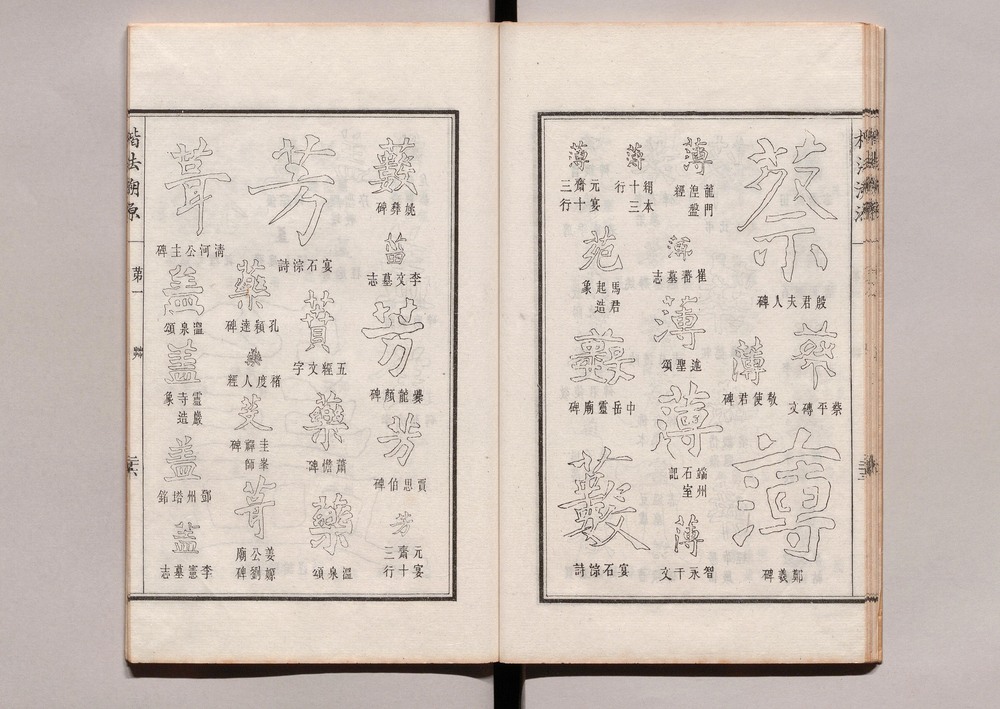 蔡
殷君夫人碑
蔡
蔡平磚文
薄
敬使君碑
薄
鄭羲碑
薄
龍門涅盤經
薄
崔蕃墓志
薄
述聖頌
薄
端州石室記
薄
智永千文
薄
棚本十三行
薄
元晏齋三十行
苑
馬君起造象
藂
中岳靈廟碑
藪
宴石淙詩
藪
姚彝碑
苗
李文墓志
芳
爨龍顏碑
芳
賈思伯碑
芳
元晏齋三十行
芳
宴石淙詩
蕡
五經文字
藥
蕭憺碑
藥
溫泉頌
藥
孔穎達碑
藥
褚度人經
艾
圭峯禪師碑
葺
姜嫄公劉廟碑
葺
清河公主碑
盖
溫泉頌
蓋
靈巖寺造象
盖
鄧州塔銘
蓋
李憲墓志
楷法溯原
第一
艸